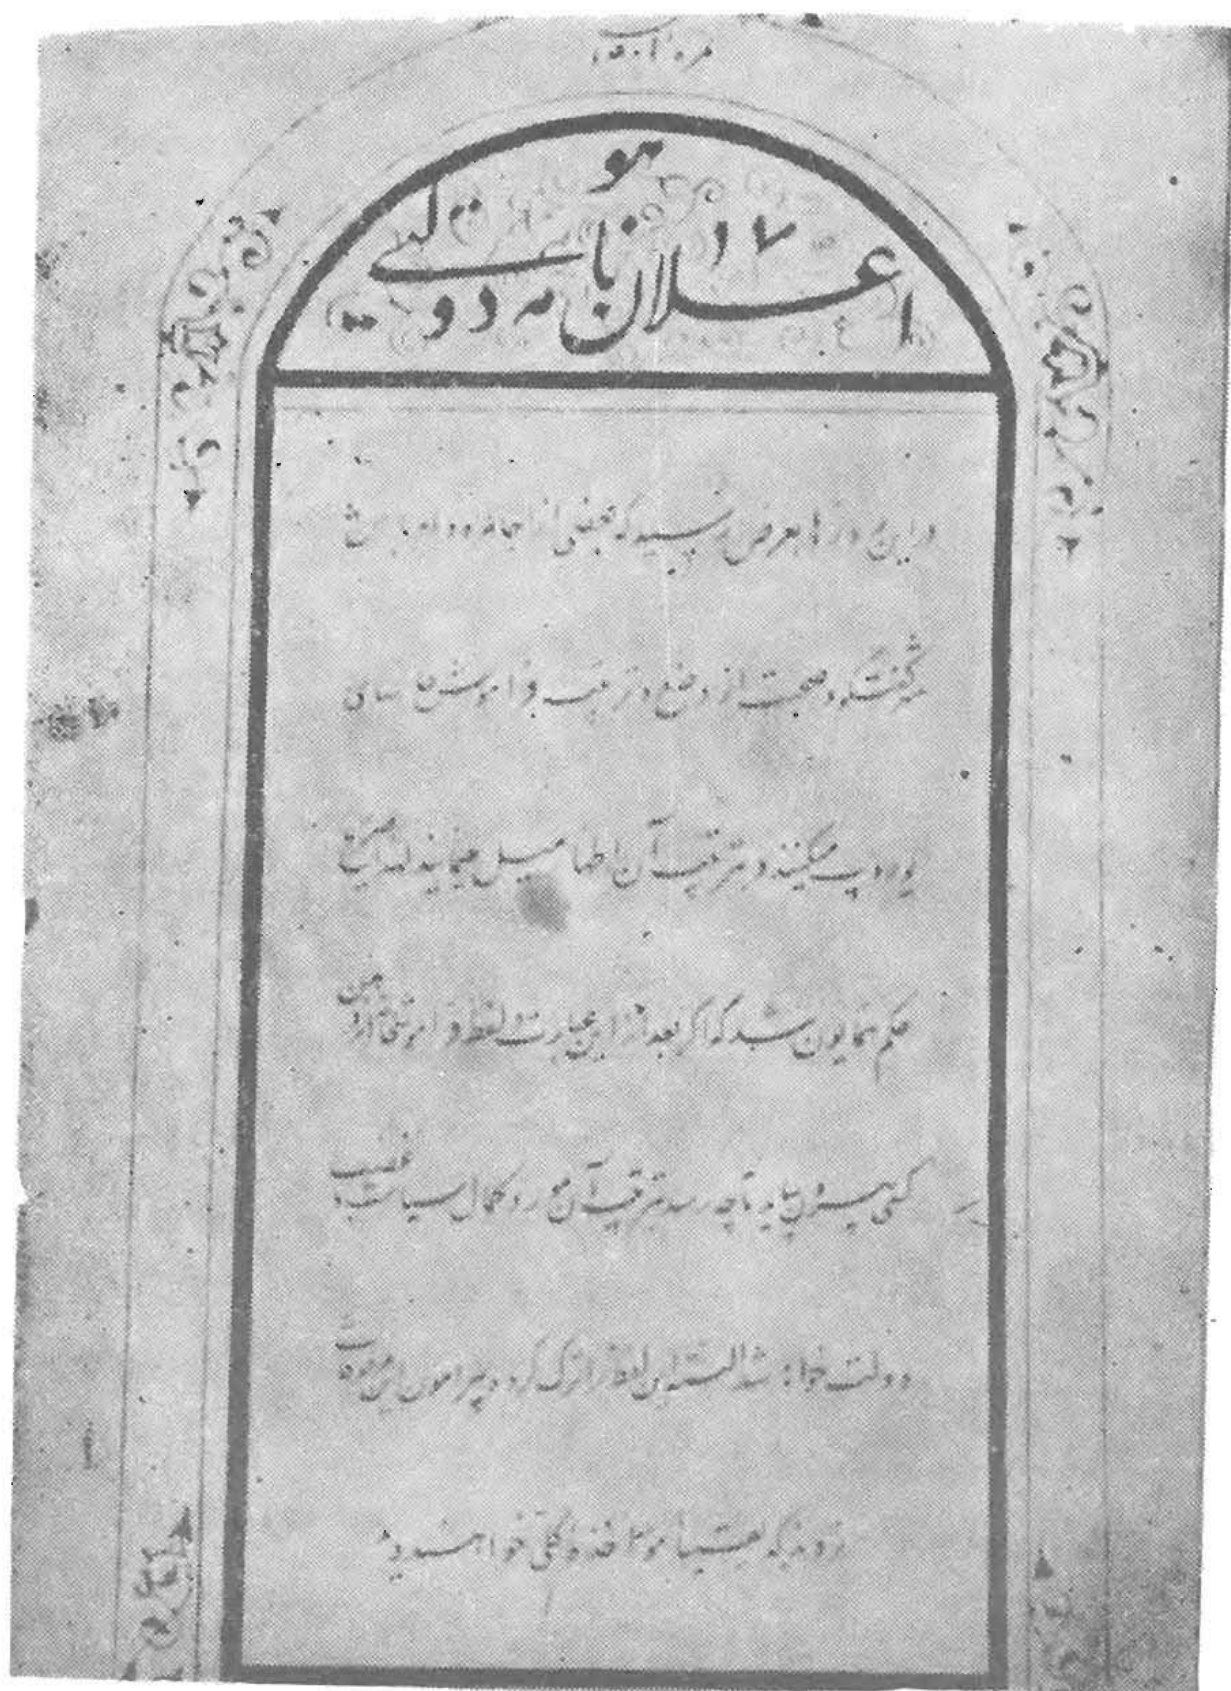 نمره ۱۵۰۱
هو
۱۷
اعلان نامه دولتی
در این روزها بعرض رسید که بعضی از اجامر و اوباش شهر
گفتگو و صحبت از وضع و ترتیب فراموشخانهای
یوروپ میکنند و بترتیب آن اظهار میل مینمایند لهذا صریح
حکم همایون شد که اگر بعد از این عبارت و لفظ فراموشخانه از دهن
کسی بیرون بیاید تا چه رسد بترتیب آن مورد کمال سیاست و غضب
دولت خواهد شد البته این لفظ را ترک کرده پیرامون این مزخرفات
نروند که یقینا مؤاخذه کلی خواهند دید